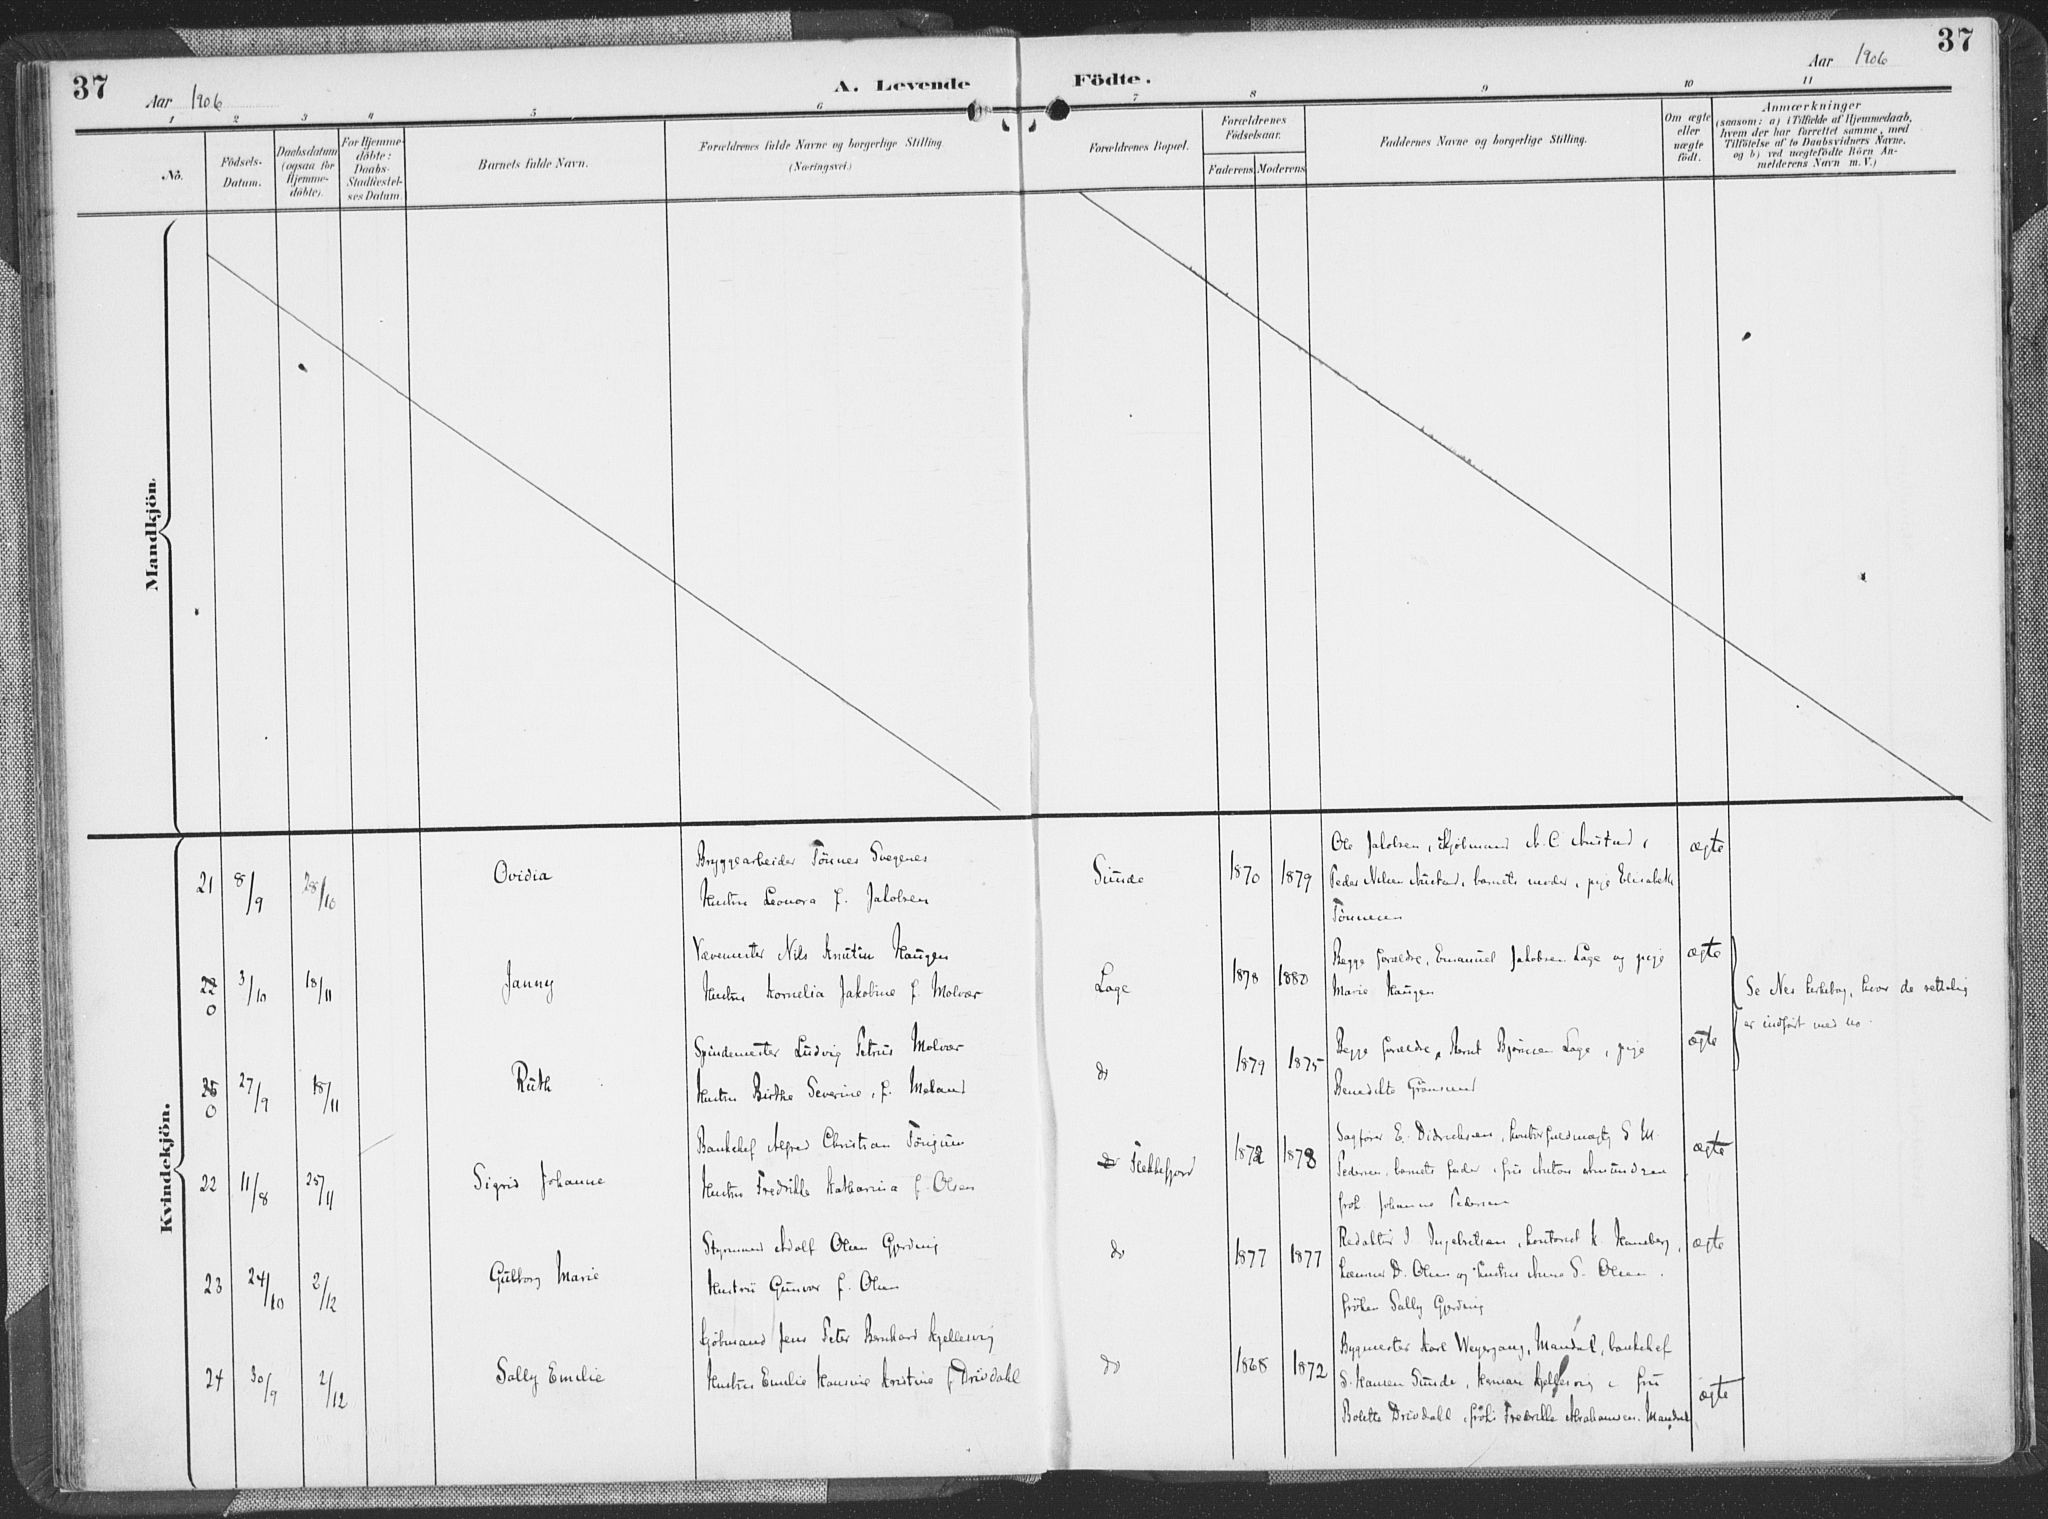 37
Aar 1906
A. Levende
Födte.
Aar 1906
37
1 2 3 4 5 6 7 8 9 10 11
No.
Födsels-
Datum.
Daabsdatum
(ogsaa for
Hjemme-
döbte).
For Hjemme-
döbte:
Daabs-
Stadfæstel-
ses Datum.
Barnets fulde Navn.
Forældrenes fulde Navne og borgerlige Stilling
(Næringsvei.)
Forældrenes Bopæl.
Forældrenes
Födselsaar.
Faderens
Moderens
Faddernes Navne og borgerlige Stilling.
Om ægte
eller
uægte
födt.
Anmærkninger
(saasom: a) i Tilfælde af Hjemmedaab,
hvem der har forrettet samme, med
Tilföielse af to Daabsvidners Navne,
og b) ved uægtefödte Börn An-
melderens Navn m. V.)
Mandkjön.
Kvindekjön.
21 8/9 28/10 Ovidia
Bryggearbeider Tönnes Svegenes
Hustru Leonora f. Jakobsen
Sunde 1870 1879
Ole Jakobsen, kjöbmand A. C. Austad,
Peder Nilsen Austad, barnets moder, pige Elisabeth
Tönnesen
ægte
22 0 3/10 18/11 Janny
Vævemester Nils Knutsen Haugen
Hustru Kornelia Jakobine f. Molvær
Lage 1878 1880
Begge forældre, Emanuel Jakobsen Lage og pige
Marie Haugen
ægte
Se Nes kirkebog, hvor de rettelig
er indfört med no.
0 27/9 18/11 Ruth
Spindemester Ludvig Petrus Molvær
Hustru Birthe Severine, f. Meland
do 1879 1875
Begge forældre, Bernt Björnsen Lage, pige
Benedikte Grönsund
ægte
22 11/8 25/11 Sigrid Johanne
Bankchef Alfred Christian
Hustru Fredrikke Katharina f. Olsen
Flekkefjord 1872 1878
Sagförer E. Didriksen, kontorfuldmægtig S. M.
Pedersen, barnets fader, fru Anton Amundsen
frök Johanne Pedersen
ægte
23 24/10 2/12 Gulborg Marie
Styrmand Adolf Olsen Gjerding
Hustru Gunvor f. Olsen
do 1877 1877
Redaktör J. Ingebretsen, kontorist K. Hamberg,
kæmner D. Olsen og hustru Anna S. Olsen.
fröken Sally Gjerding
ægte
24 30/9 2/12 Sally Emilie
Kjöbmand Jens Peter Bernhard Kjellesvig
Hustru Emilie Hansine Kristine f. Drivdahl
do 1868 1872
Bygmester Karl Weyergang, Mandal, bankchef
S. Hansen Sunde, Herman Kjellesvig, fru
Bolette Drivdahl, frök. Fredrikke Abrahamsen. Mandal
ægte